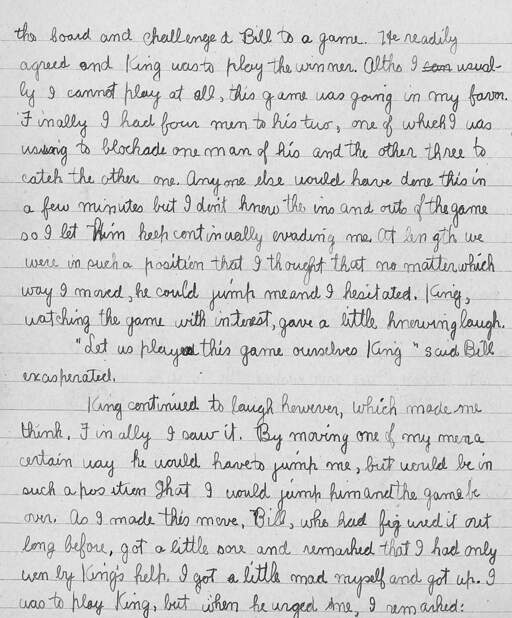 the board and challenged Bill to a game. He readily
agreed and King was to play the winner. Altho I can usual-
ly I cannot play at all, this game was going in my favor.
Finally I had four men to his two, one of which I was
using to blockade one man of his and the other three to
catch the other one. Anyone else would have done this in
a few minutes but I don't know the ins and outs of the game
so I let him keep continually evading me. At length we
were in such a position that I thought that no matter which
way I moved, he could jump me and I hesitated. King,
watching the game with interest, gave a little knowing laugh.
"Let us play this game ourselves King" said Bill
exasperated.
King continued to laugh however, which made me
think. Finally I saw it. By moving one of my men a
certain way he would have to jump me, but would be in
such a position that I would jump him and the game be
over. As I made this move, Bill, who had figured it out
long before, got a little sore and remarked that I had only
won by King's help. I got a little mad myself and got up. I
was to play King, but when he urged me, I remarked: